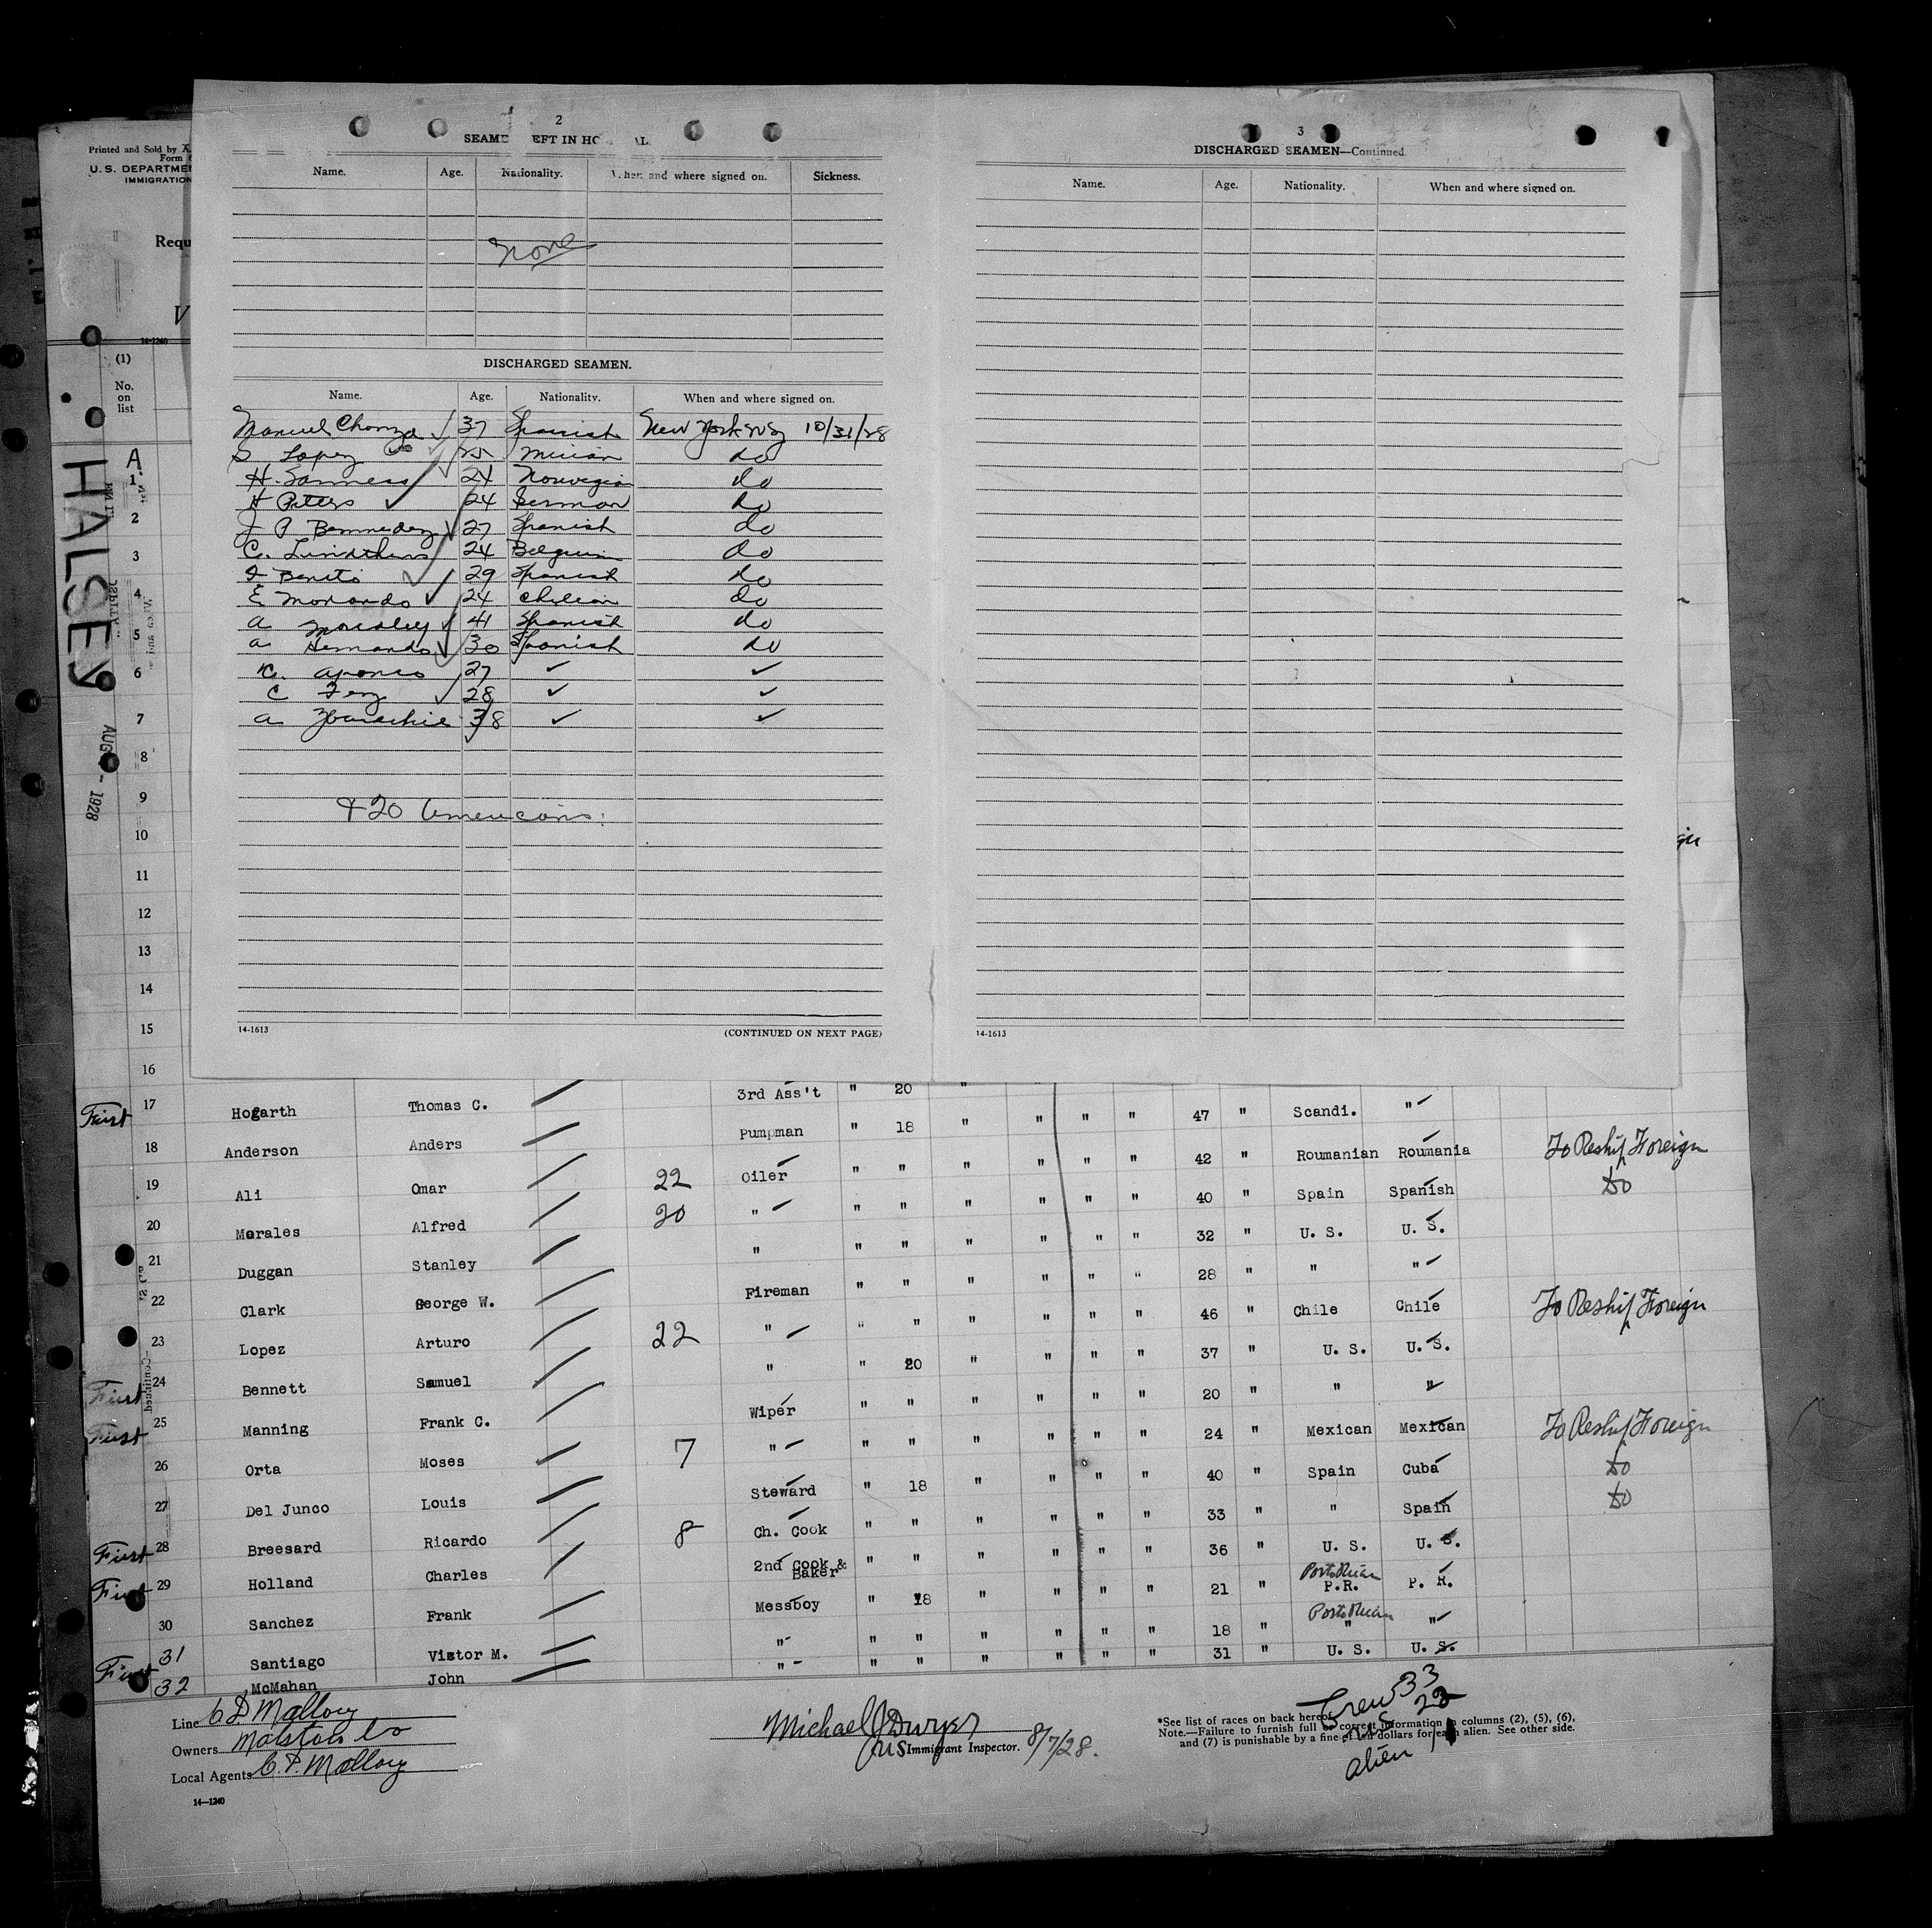 Printed and Sold by A.
Form
U. S. DEPARTME
IMMIGRATION
Requ
V
14-1240
(1)
No.
on
list
HALSEY
AUG - 1928
A
2
SEAME EFT IN HO AL.
Name. Age. Nationality. When and where signed on. Sickness.
None
DISCHARGED SEAMEN.
Name. Age. Nationality. When and where signed on.
Manuel 37 Spanish New York 10/31/28
S Lopez do
H. 24 Norwegian do
H Peters 24 German do
J P 27 Spanish do
C. 24 Belgium do
Benito 29 Spanish do
E Morando 24 Chilean do
a 41 Spanish do
a Hernando 30 Spanish do
aponco 27 ✓ ✓
C 28 ✓ ✓
a 38 ✓ ✓
+20 Americans
14-1613 (CONTINUED ON NEXT PAGE)
3
DISCHARGED SEAMEN—Continued.
Name. Age. Nationality. When and where signed on.
14-1613
1
2
3
4
5
6
7
8
9
10
11
12
13
14
15
16
3rd Ass't " 20 "
First 17 Hogarth Thomas C. Pumpman " 18 " " " " 47 " Scandi. "
18 Anderson Anders Oiler " " " " " " 42 " Roumanian Roumania To Reship Foreign
19 Ali Omar 22 " " " " " " " 40 " Spain Spanish do
20 Morales Alfred 20 " " " " " " " 32 " U. S. U. S.
21 Duggan Stanley Fireman " " " " " " 28 " " "
22 Clark George W. " " " " " " " 46 " Chile Chile To Reship Foreign
23 Lopez Arturo 22 " " 20 " " " " 37 " U. S. U. S.
First 24 Bennett Samuel Wiper " " " " " " 20 " " "
First 25 Manning Frank C. " " " " " " " 24 " Mexican Mexican To Reship Foreign
26 Orta Moses 7 Steward " 18 " " " " 40 " Spain Cuba do
27 Del Junco Louis Ch. Cook " " " " " " 33 " " Spain do
First 28 Breesard Ricardo 8 2nd Cook & Baker " " " " " " 36 " U. S. U. S.
First 29 Holland Charles Messboy " 18 " " " " 21 " Porto Rican P.R. P. R.
30 Sanchez Frank " " " " " " " 18 " Porto Rican " "
31 Santiago Victor M. " " " " " " " 31 " U. S. U. S.
First 32 McMahan John
Line C D Mallory
Owners Malston Co
Local Agents C. D. Mallory
14—1240
Michael J Dwyer
US Immigrant Inspector. 8/7/28.
Crew 33
US 22
alien 11
*See list of races on back hereof.
Note.—Failure to furnish full or correct information in columns (2), (5), (6),
and (7) is punishable by a fine of ten dollars for each alien. See other side.